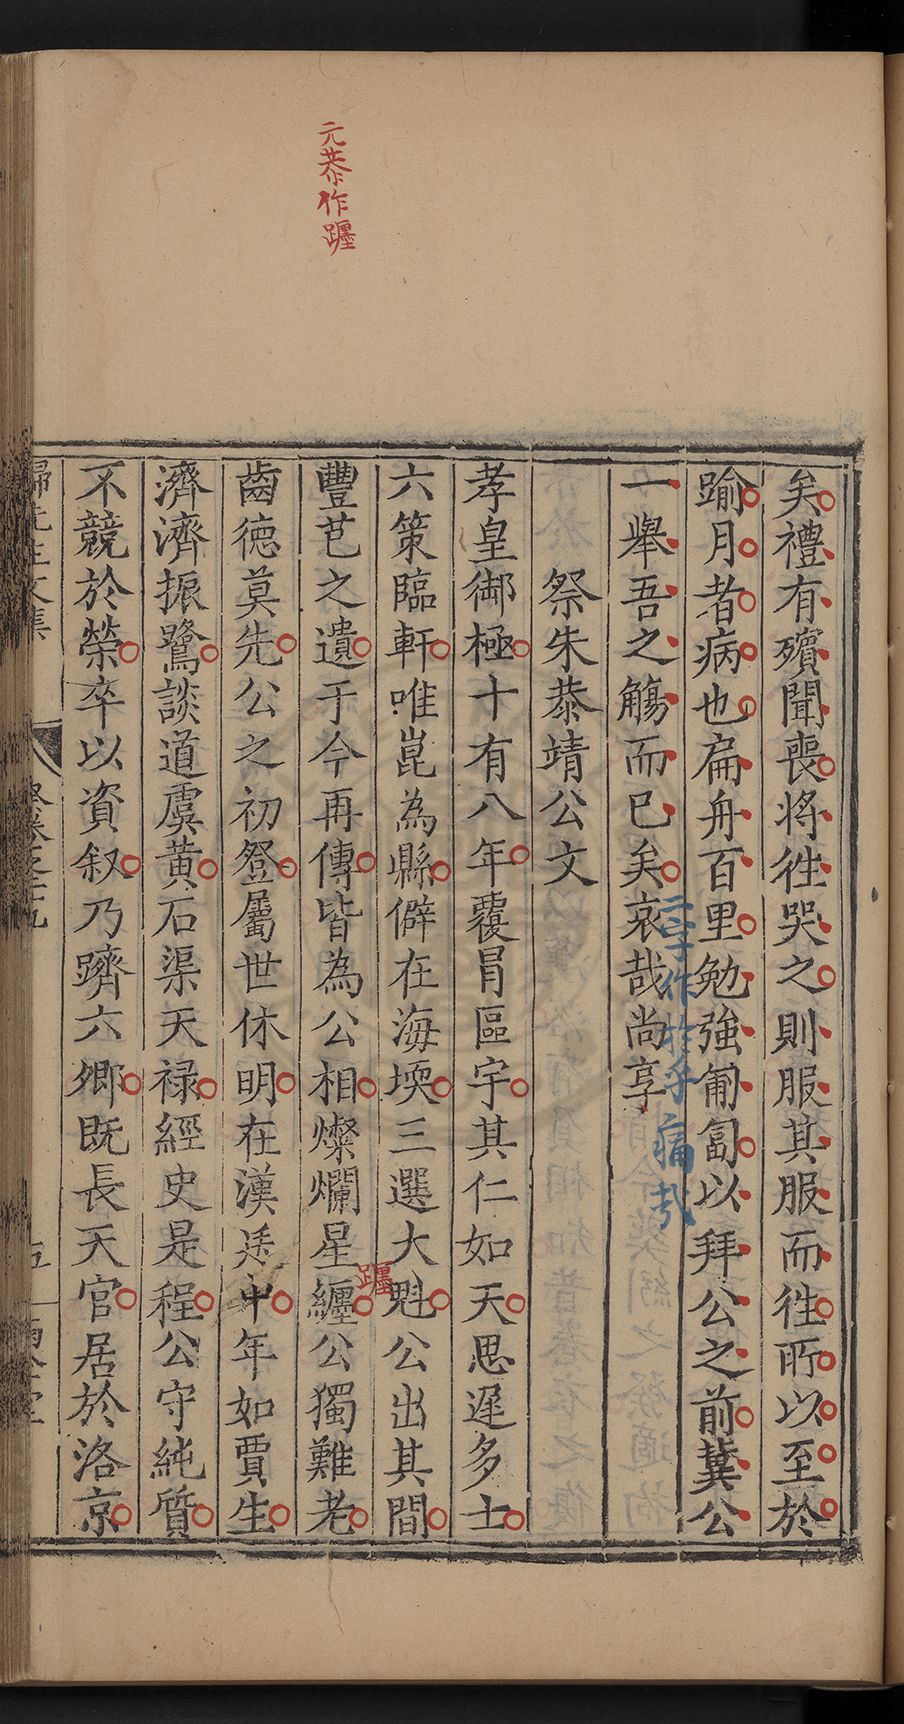 元恭作躔
矣禮有殯聞喪将徃哭之則服其服而徃所以至於
踰月者病也扁舟百里勉強匍匐以拜公之前冀公
一舉吾之觴而已矣哀哉尚享
二字作於乎痛哉
祭朱恭靖公文
孝皇御極十有八年覆冒區宇其仁如天思遅多士
六策臨軒唯崑為縣僻在海堧三選大魁公出其間
豐芑之遺于今再傳皆為公相燦爛星纏公獨難老
躔
齒徳莫先公之初登屬世休明在漢㢠中年如賈生
濟濟振鷺談道虞黄石渠天禄經史是程公守純質
不競於榮卒以資叙乃躋六卿既長天官居於洛京